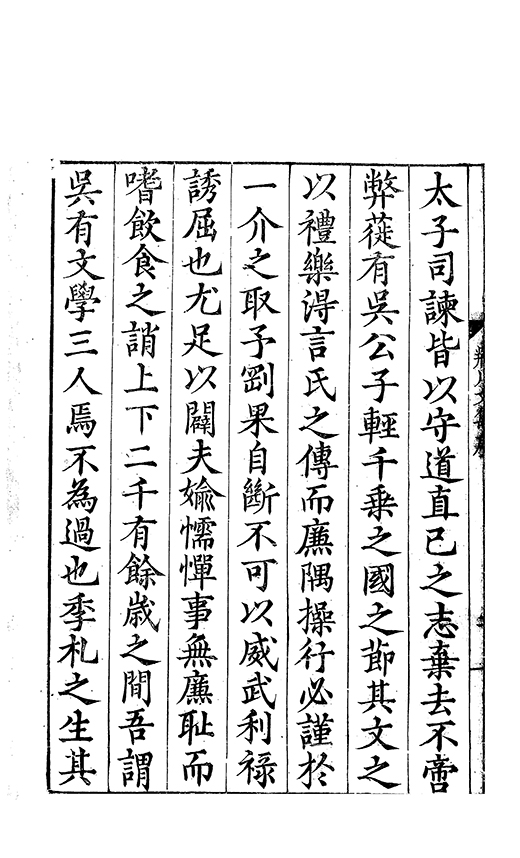 太子司諫皆以守道直己之志棄去不啻
弊蓰有吳公子輕千乗之國之節其文之
以禮樂淂言氏之傳而廉隅操行必謹於
一介之取予劉果自斷不可以威武利祿
誘屈也尤足以闢夫婾懦憚事無廉耻而
嗜飲食之誚上下二千有餘歲之間吾謂
吳有文學三人焉不為過也季札之生其